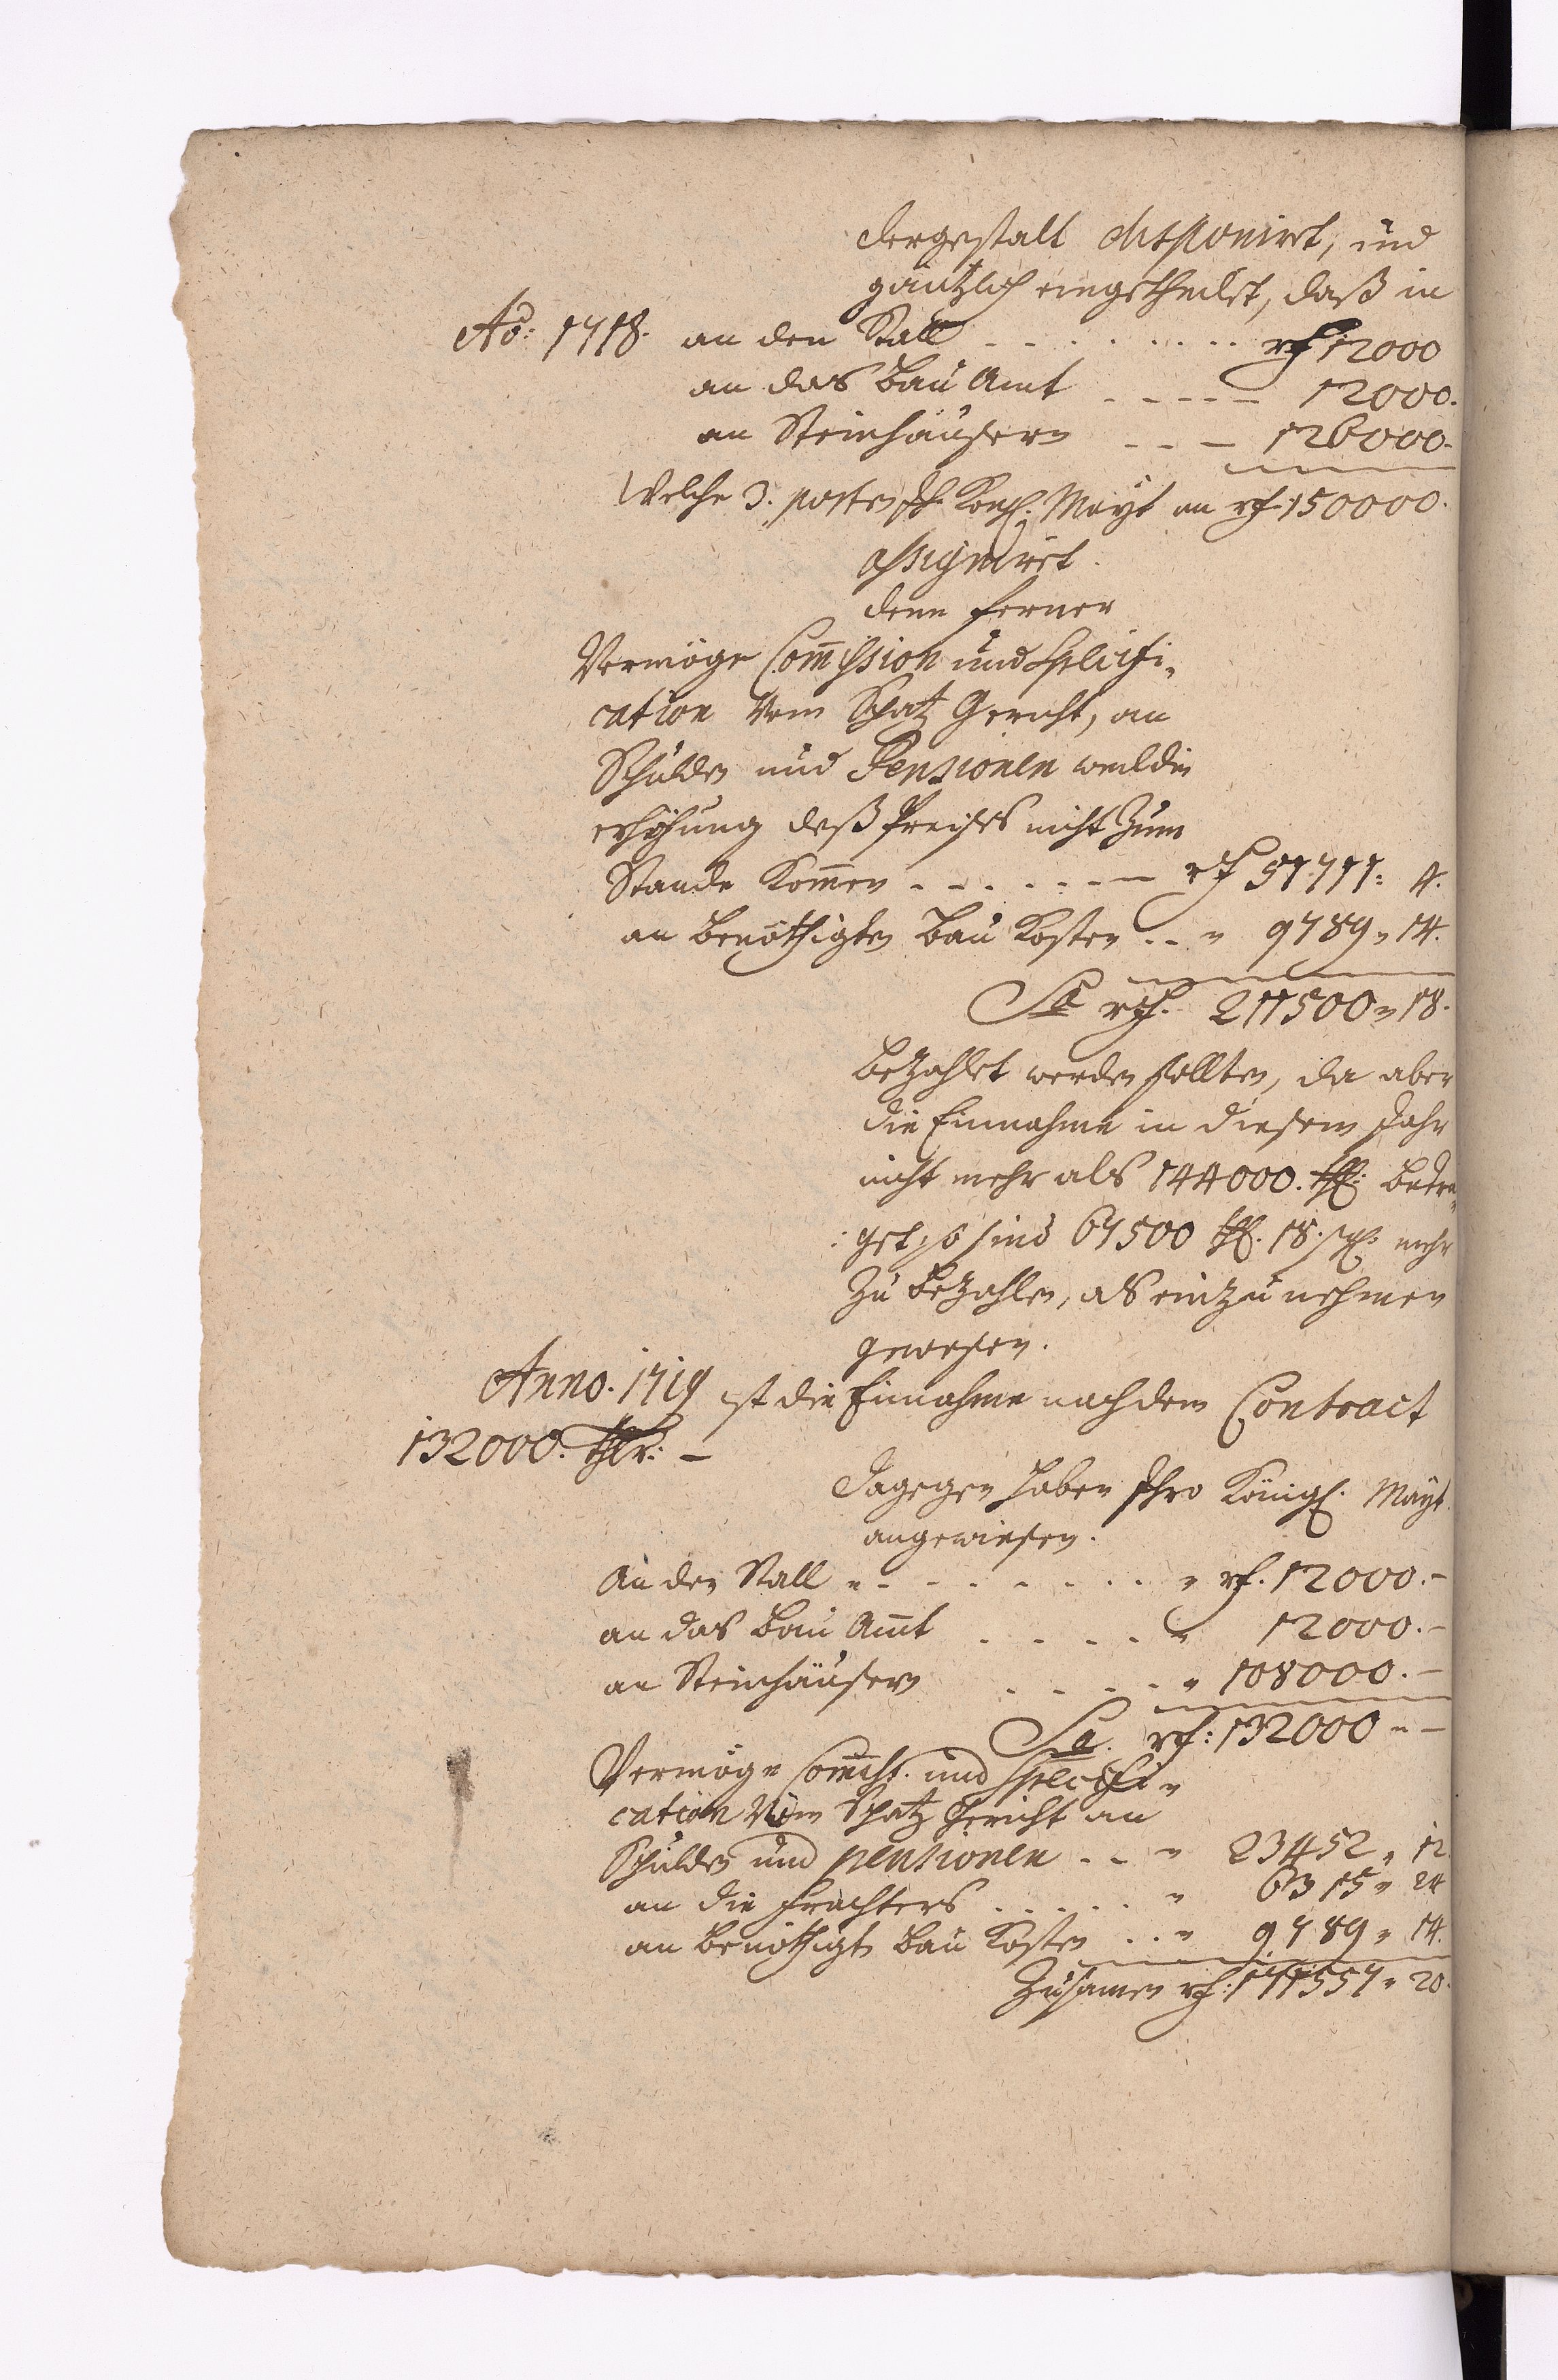 dergestalt disponiret, und
gäntzlich eingetheilet, daß in
Aō: 1718. an den Stall - - - - - - - - rf 12000
an das Bau Amt - - - - - 12000.
an Steinhäusern - - - 126000.
Welche 3. posten Ih. Königl: Mayt an rf 150000.
assigniret.
denn ferner
Vermöge Com̄ission und Specifi-
cation vom Schatz Gericht, an
Schulden und Pensionen weil die
erhöhung deß Preißes nicht zum
Stande kom̄en - - - - - - - rf 51711: 4.
an benöthigten Bau Kosten - - " 9789 " 14.
Sa rf. 211500 " 18.
bezahlet werden sollten, da aber
die Einnahme in diesem Jahr
nicht mehr als 144000. thl: betra-
:get, so sind 67500 thl. 18. sgl: mehr
zu bezahlen, als einzunehmen
gewesen.
Anno. 1719 ist die Einnahme nach dem Contract
132000. thlr: -
Dagegen haben Ihro Königl. Mayt.
angewiesen.
An den Stall " - - - - - - - - " rf. 12000. -
an das Bau Amt - - - - " 12000. -
an Steinhäusern - - - - " 108000. -
Sa. rf: 132000 " -
Vermöge Com̄iss. und Specifi-
cation vom Schatz Gericht an
Schulden und pensionen - - " 23452 " 12
an die Frachters - - - - - " 6315 " 24
an benöthigte Bau Kosten - - " 9789 " 14.
Zusam̄en rf: 171557 " 20.